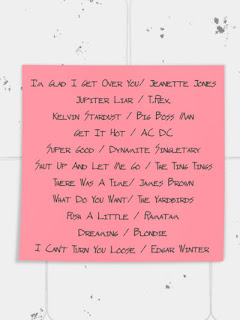 I'm Glad I Get Over You/ Jeanette Jones
Jupiter Liar / T.Rex
Kelvin Stardust / Big Boss Man
Get It Hot / AC DC
Super Good / Dynamite Singletary
Shut Up And Let Me Go / The Ting Tings
There Was A Time/ James Brown
What Do You Want/ The Yardbirds
Push A Little / Ramatam
Dreaming / Blondie
I Can't Turn You Loose / Edgar Winter